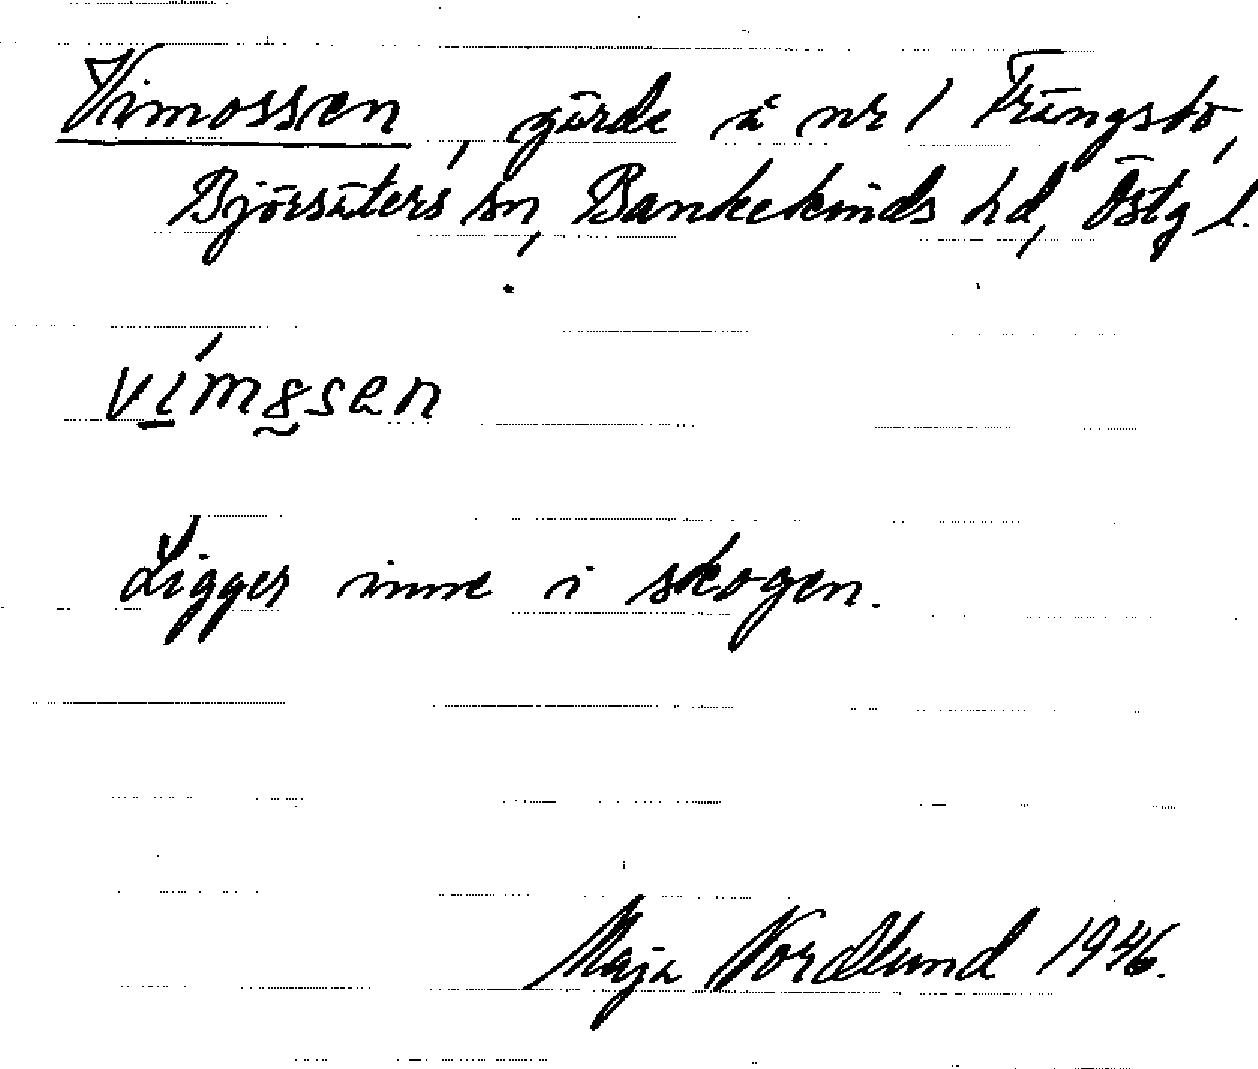 Vimossen, gärde å nr 1 Trängsbo,
Björsäters sn, Bankekinds hd, Östg l.
vímȣssen
Ligger inne i skogen.
Maja Nordlund 1946.